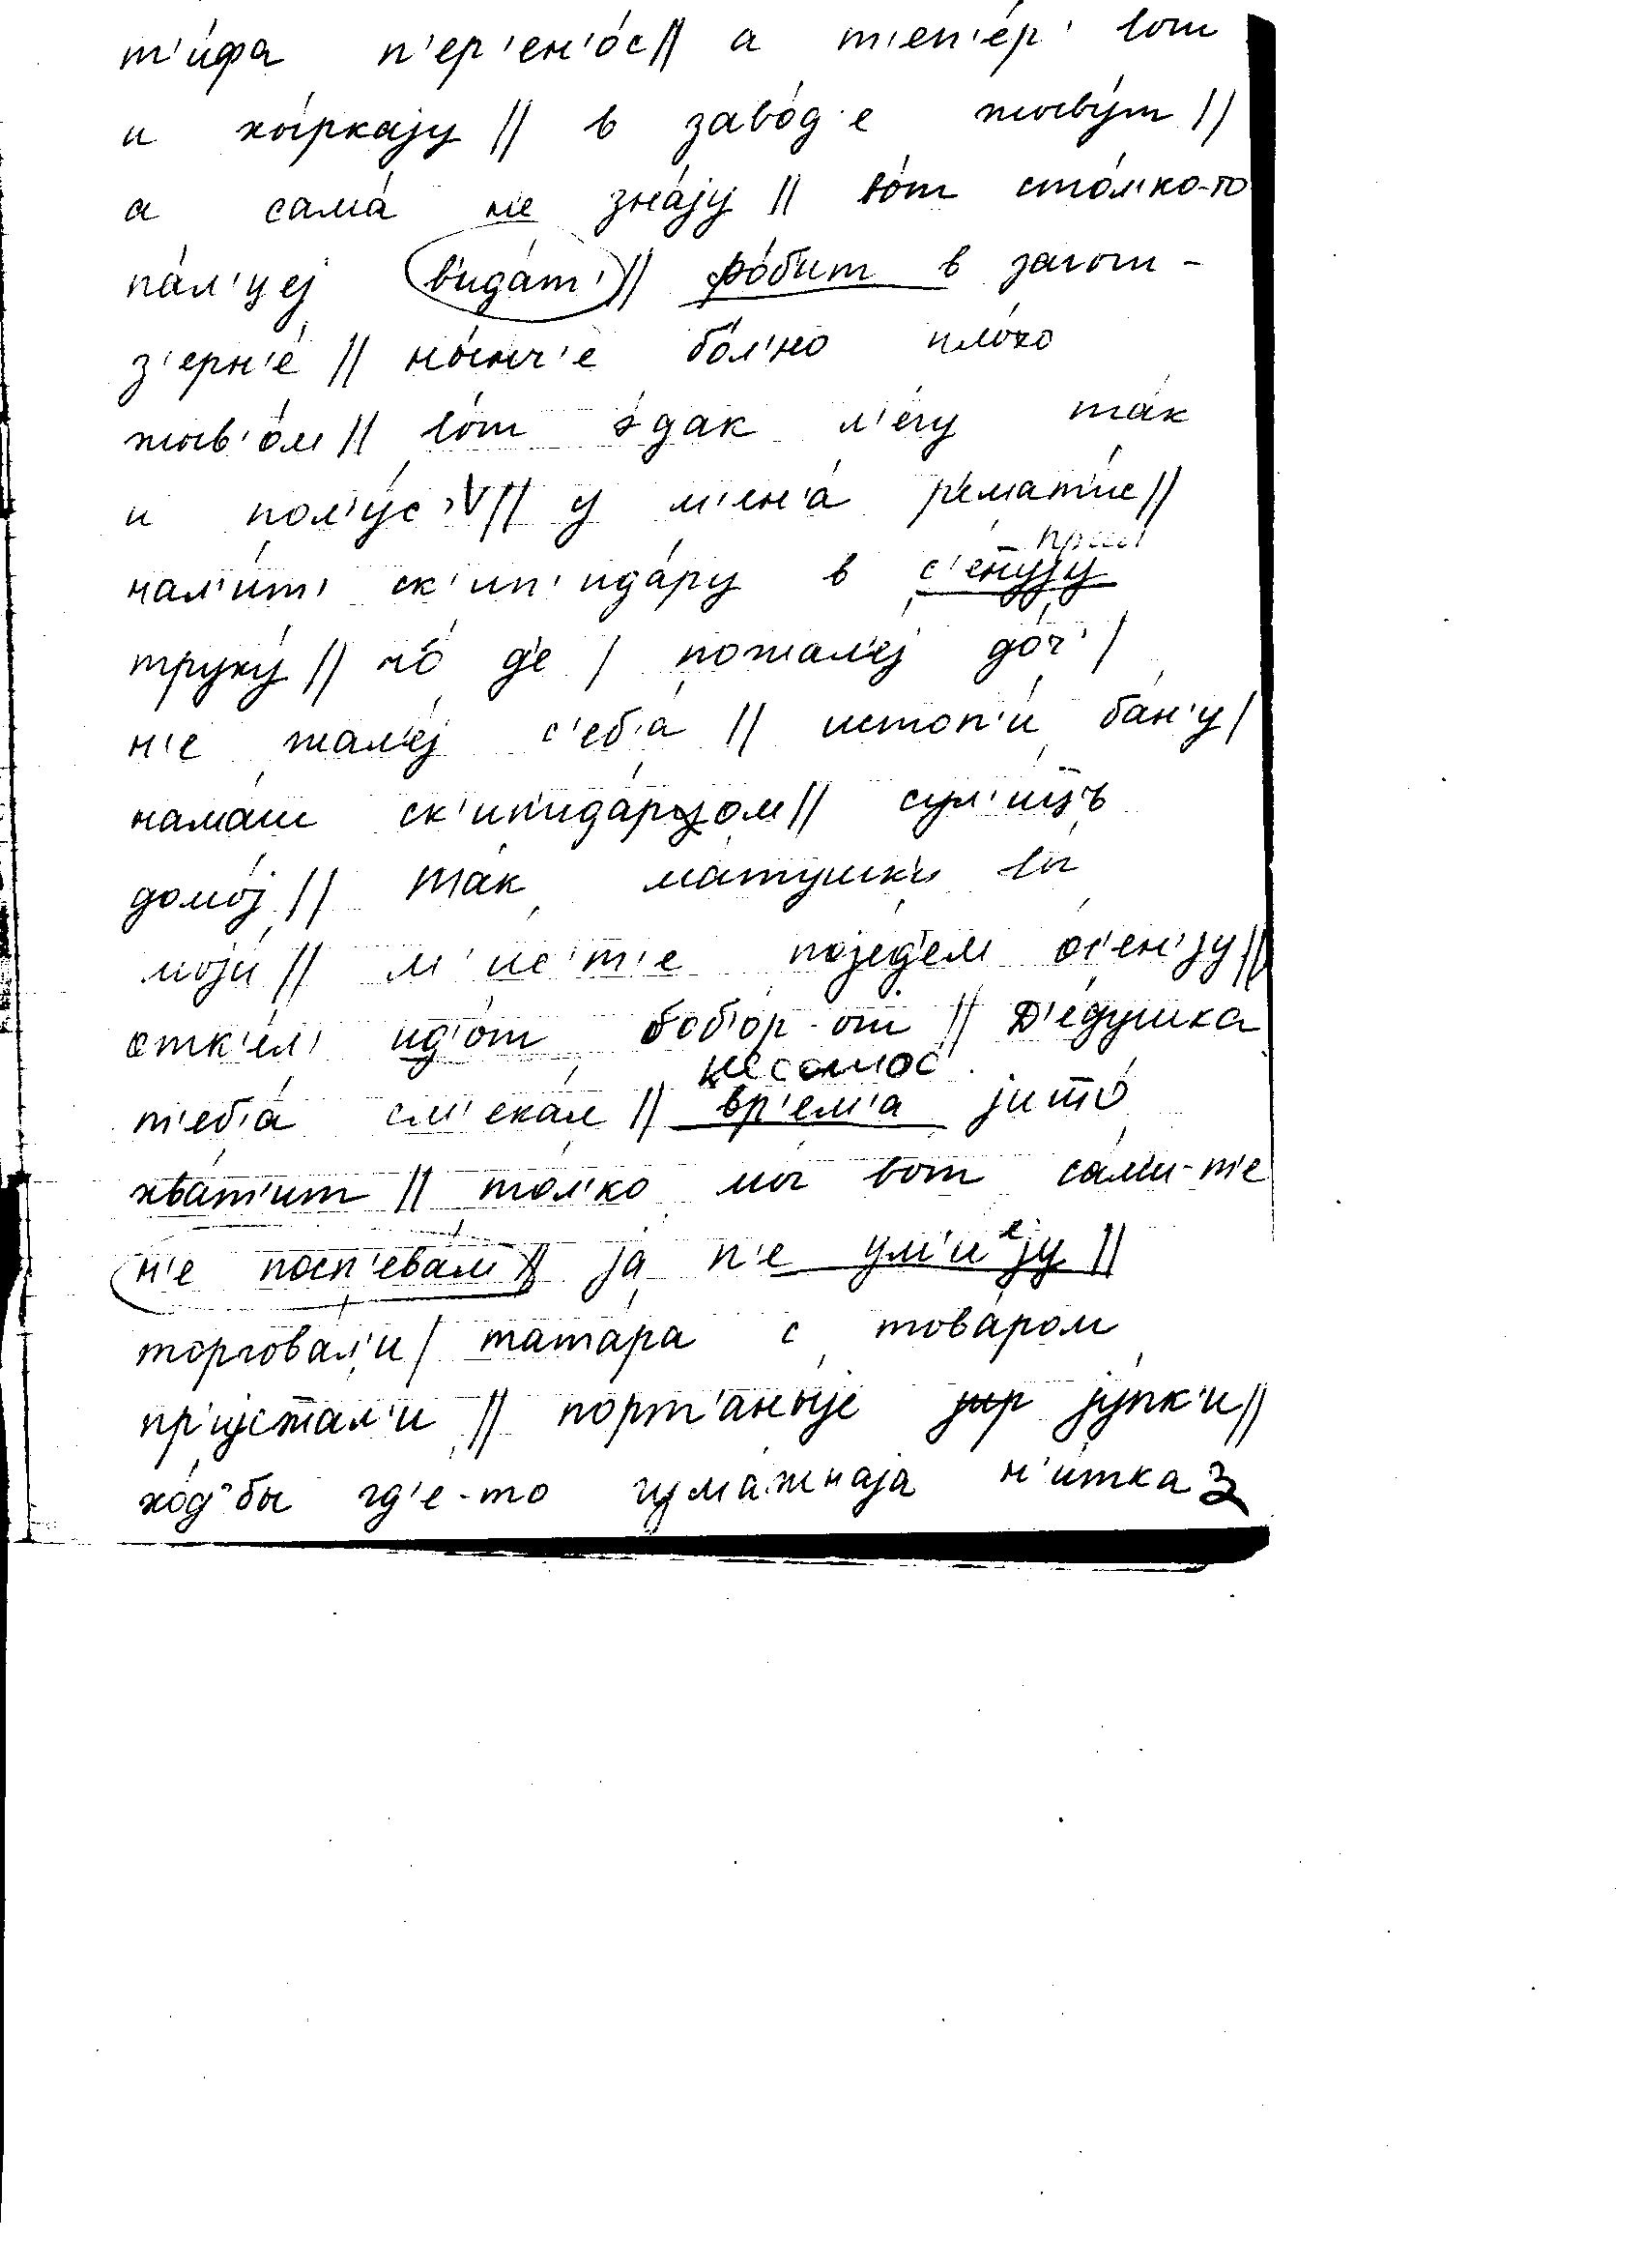 т'и́фа п'ер'ен'о́с // а т'еп'е́р' вот
и хы́ркаjу // в заво́д'е жыву́т //
а сама́ не зна́jу // во́т сто́л'ко-то
па́л'цеj в'ида́т' // ро́бит в загот-
з'ерн'е́ // ны́нч'е бо́л'но пло́хо
жыв'о́м // во́т э́дак л'е́гу та́к
и пол'у́с' // у м'ен'а́ р'емат'и́е //
нал'и́т' ск'ип'ида́ру в с'е́нуjу
труху́ // чо́ д'е / пожал'е́j до́ч' /
н'е жал'е́j с'еб'а́ // истоп'и́ ба́н'у /
нама́ш ск'ип'ида́ром // сул'и́цъ
домо́j // та́к ма́тушк'и вы́
моjи́ // м'ис'т'е поjе́д'ем о́с'ен'jу //
отк'е́л' ид'о́т боб'о́р-от // Д'е́душка
т'еб'а́ см'ека́л // вр'е́м'а jишо́
хва́т'ит // то́л'ко мы́ вот са́ми-т'е
н'е посп'ева́м // jа́ н'е ум'иеjу //
торгова́л'и / тата́ра с това́ром
пр'иjстал'и // порт'аны́jе jур jу́пк'и //
хо́д' бы гд'е-то гума́жнаjа н'и́тка 3